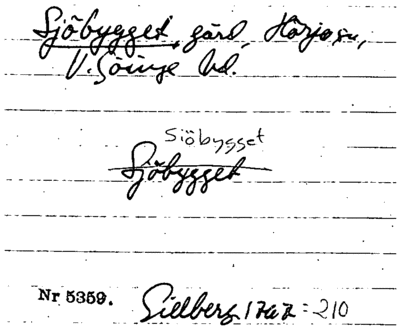 Sjöbygget, gård, Hörja sn,
V. Göinge hd.
Siöbygget
Sjöbygget
Nr 5359. Gillberg 1767 : 210